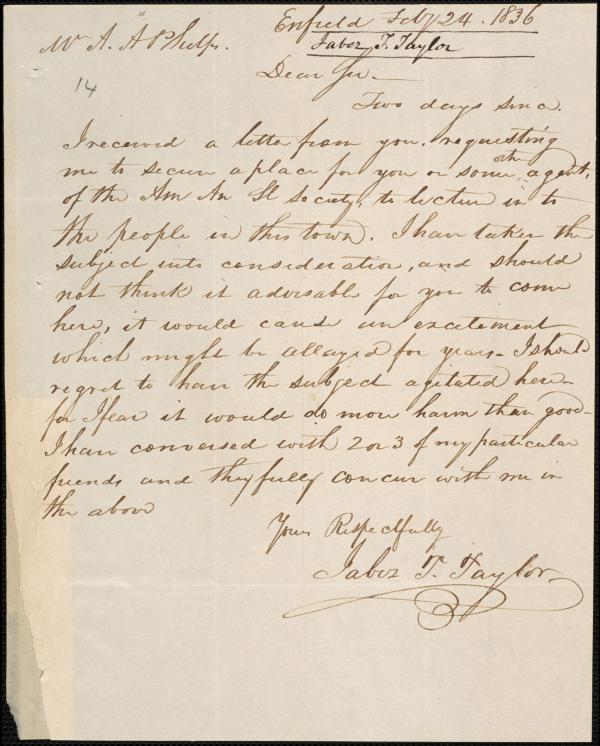 Enfield Feby 24. 1836
Mr A. A Phelps.
Jabez T. Taylor
Dear Sir—
14
Two days since.
I received a letter from you, requesting
me to secure a place for you or some other agent,
of the Am An Sl Society, to lecture in to
the people in this town. I have taken the
subject into consideration, and should
not think it advisable for you to come
here, it would cause an excitement
which might be allayed for years— I should
regret to have the subject agitated here—
for I fear it would do more harm than good—
I have conversed with 2 or 3 of my particular
friends and they fully concur with me in
the above
Yours Respectfully
Jabez T. Taylor